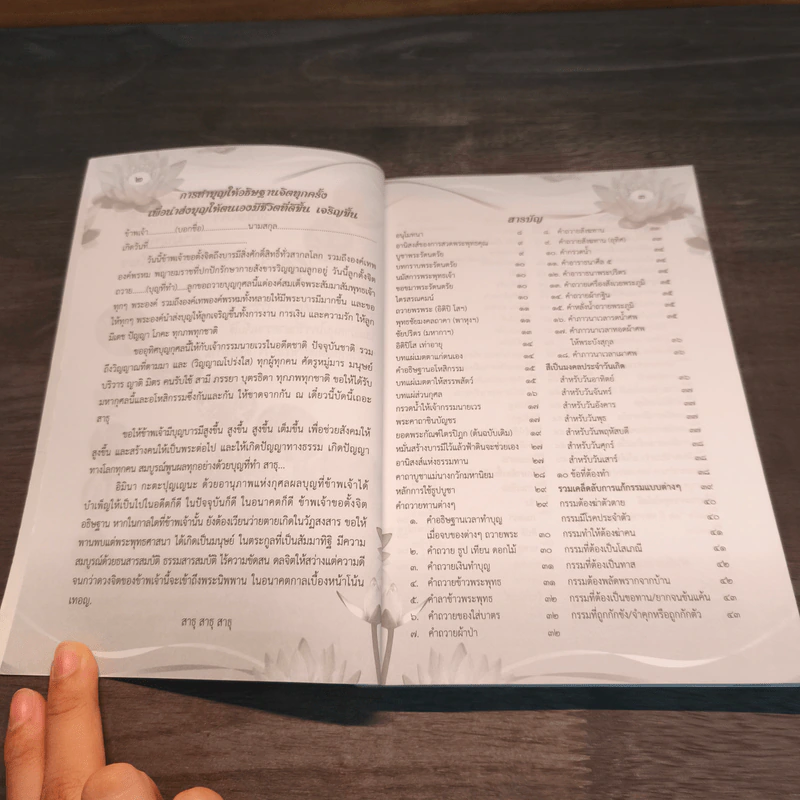 ๒
การทำบุญให้อธิษฐานจิตทุกครั้ง
เพื่อนำส่งบุญให้ตนเองมีชีวิตที่ดีขึ้น เจริญขึ้น
ข้าพเจ้า............(บอกชื่อ)............นามสกุล
เกิดวันที่
วันนี้ข้าพเจ้าขอตั้งจิตถึงบารมีสิ่งศักดิ์สิทธิ์ทั่วสากลโลก รวมถึงองค์เทพ
องค์พรหม พญายมราชที่ปกปักรักษากายสังขารวิญญาณลูกอยู่ วันนี้ลูกตั้งจิต
ถวาย......(บุญที่ทำ).....ลูกขอถวายบุญกุศลนี้แด่องค์สมเด็จพระสัมมาสัมพุทธเจ้า
ทุกๆ พระองค์ รวมถึงองค์เทพองค์พรหมทั้งหลายให้มีพระบารมีมากขึ้น และขอ
ให้ทุกๆ พระองค์นำส่งบุญให้ลูกเจริญขึ้นทั้งการงาน การเงิน และความรัก ให้ลูก
มีเดช ปัญญา โภคะ ทุกภพทุกชาติ
ขออุทิศบุญกุศลนี้ให้กับเจ้ากรรมนายเวรในอดีตชาติ ปัจจุบันชาติ รวม
ถึงวิญญาณที่ตามมา และ (วิญญาณโปร่งใส) ทุกผู้ทุกคน ศัตรูหมู่มาร มนุษย์
บริวาร ญาติ มิตร คนรับใช้ สามี ภรรยา บุตรธิดา ทุกภพทุกชาติ ขอให้ได้รับ
มหากุศลนี้และอโหสิกรรมซึ่งกันและกัน ให้ขาดจากกัน ณ เดี๋ยวนี้บัดนี้เถอะ
สาธุ
ขอให้ข้าพเจ้ามีบุญบารมีสูงขึ้น สูงขึ้น สูงขึ้น เต็มขึ้น เพื่อช่วยสังคมให้
สูงขึ้น และสร้างคนให้เป็นพระต่อไป และให้เกิดปัญญาทางธรรม เกิดปัญญา
ทางโลกทุกคน สมบูรณ์พูนผลทุกอย่างด้วยบุญที่ทำ สาธุ...
อิมินา กะตะปุญเญนะ ด้วยอานุภาพแห่งกุศลผลบุญที่ข้าพเจ้าได้
บำเพ็ญให้เป็นไปในอดีตก็ดี ในปัจจุบันก็ดี ในอนาคตก็ดี ข้าพเจ้าขอตั้งจิต
อธิษฐาน หากในกาลใดที่ข้าพเจ้านั้น ยังต้องเวียนว่ายตายเกิดในวัฏสงสาร ขอให้
พานพบแต่พระพุทธศาสนา ได้เกิดเป็นมนุษย์ ในตระกูลที่เป็นสัมมาทิฐิ มีความ
สมบูรณ์ด้วยธนสารสมบัติ ธรรมสารสมบัติ ไร้ความขัดสน ดลจิตให้สว่างแต่ความดี
จนกว่าดวงจิตของข้าพเจ้านี้จะเข้าถึงพระนิพพาน ในอนาคตกาลเบื้องหน้าโน้น
เทอญ.
สาธุ สาธุ สาธุ
๓
สารบัญ
อนุโมทนา
อานิสงส์ของการสวดพระพุทธคุณ
บูชาพระรัตนตรัย
บทกราบพระรัตนตรัย
นมัสการพระพุทธเจ้า
ขอขมาพระรัตนตรัย
ไตรสรณคมน์
ถวายพรพระ (อิติปิ โสฯ)
พุทธชัยมงคลคาถา (พาหุงฯ)
ชัยปริตร (มหากาฯ)
อิติปิโส เท่าอายุ ๑๔
บทแผ่เมตตาแก่ตนเอง ๑๔
คำอธิษฐานอโหสิกรรม ๑๕
บทแผ่เมตตาให้สรรพสัตว์ ๑๕
บทแผ่ส่วนกุศล ๑๖
กรวดน้ำให้เจ้ากรรมนายเวร ๑๗
พระคาถาชินบัญชร ๑๗
ยอดพระกัณฑ์ไตรปิฎก (ต้นฉบับเดิม) ๑๙
หมั่นสร้างบารมีไว้แล้วฟ้าดินจะช่วยเอง ๒๗
อานิสงส์แห่งธรรมทาน ๒๗
คาถาบูชาแม่นางกวักมหานิยม ๒๘
หลักการใช้ธูปบูชา ๒๙
คำถวายทานต่างๆ ๒๙
๑. คำอธิษฐานเวลาทำบุญ
เมื่อจบของต่างๆ ถวายพระ ๓๐
๒. คำถวาย ธูป เทียน ดอกไม้ ๓๐
๓. คำถวายเงินทำบุญ ๓๑
๔. คำถวายข้าวพระพุทธ ๓๑
๕. คำลาข้าวพระพุทธ ๓๒
๖. คำถวายของใส่บาตร ๓๒
๗. คำถวายผ้าป่า ๓๒
๘. คำถวายสังฆทาน ๓๓
๙. คำถวายสังฆทาน (อุทิศ) ๓๓
๑๐ คำกรวดน้ำ ๓๔
๑๑. คำอาราธนาศีล ๕ ๓๔
๑๒. คำอาราธนาพระปริตร ๓๔
๑๔. คำถวายผ้ากฐิน ๓๕
๑๖. คำภาวนาเวลารดน้ำศพ ๓๕
๑๗. คำภาวนาเวลาทอดผ้าศพ
ให้พระบังสุกุล ๓๕
๑๘. คำภาวนาเวลาเผาศพ ๓๕
สีเป็นมงคลประจำวันเกิด
สำหรับวันอาทิตย์ ๓๖
สำหรับวันจันทร์ ๓๖
สำหรับวันอังคาร ๓๗
สำหรับวันพุธ ๓๗
สำหรับวันพฤหัสบดี ๓๗
สำหรับวันศุกร์ ๓๘
สำหรับวันเสาร์ ๓๘
๑๐ ข้อที่ต้องทำ ๓๘
รวมเคล็ดลับการแก้กรรมแบบต่างๆ ๓๙
กรรมต้องฆ่าตัวตาย ๔๐
กรรมมีโรคประจำตัว ๔๐
กรรมทำให้ต้องฆ่าคน ๔๑
กรรมที่ต้องเป็นโสเภณี ๔๑
กรรมที่ต้องเป็นทาส ๔๑
กรรมต้องพลัดพรากจากบ้าน ๔๒
กรรมที่ต้องเป็นขอทาน/ยากจนข้นแค้น ๔๓
กรรมที่ถูกกักขัง/จำคุกหรือถูกกักตัว ๔๓